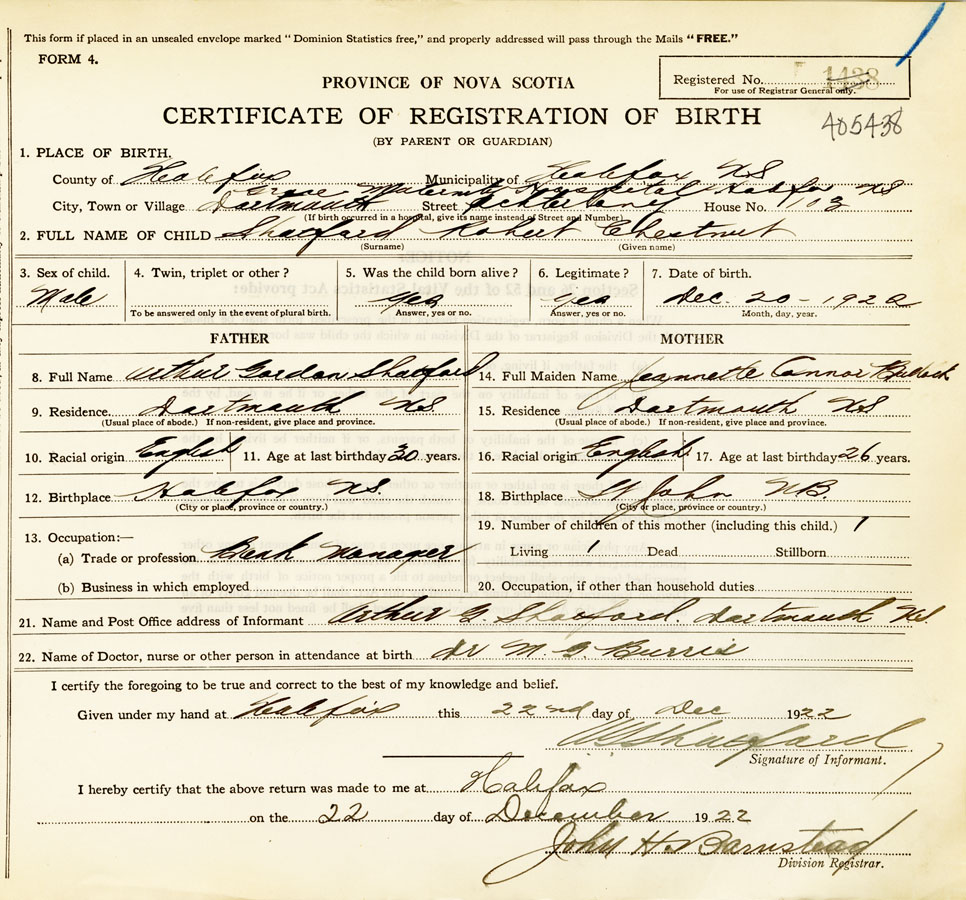 This form if placed in an unsealed envelope marked "Dominion Statistics free," and properly addressed will pass through the Mails "FREE."
FORM 4.
PROVINCE OF NOVA SCOTIA
Registered No. 1438
For use of Registrar General only.
CERTIFICATE OF REGISTRATION OF BIRTH
405438
(BY PARENT OR GUARDIAN)
1. PLACE OF BIRTH.
County of Halifax Municipality of Halifax NS
Grace Maternity Hospital Halifax NS
City, Town or Village Dartmouth Street House No. 103
(If birth occurred in a hospital, give its name instead of Street and Number)
2. FULL NAME OF CHILD Shatford Robert Chestnut
(Surname) (Given name)
3. Sex of child. 4. Twin, triplet or other? 5. Was the child born alive? 6. Legitimate? 7. Date of birth.
Male Yes Yes Dec. 20 - 1922
To be answered only in the event of plural birth. Answer, yes or no. Answer, yes or no. Month, day, year.
FATHER MOTHER
8. Full Name Arthur Gordon Shatford 14. Full Maiden Name Jeannette Connor Bullock
9. Residence Dartmouth NS 15. Residence Dartmouth NS
(Usual place of abode.) If non-resident, give place and province. (Usual place of abode.) If non-resident, give place and province.
10. Racial origin English 11. Age at last birthday 30 years. 16. Racial origin English 17. Age at last birthday 26 years.
12. Birthplace Halifax NS. 18. Birthplace St John NB.
(City or place, province or country.) (City or place, province or country.)
19. Number of children of this mother (including this child.) 1
13. Occupation:—
(a) Trade or profession Bank Manager Living 1 Dead Stillborn
(b) Business in which employed 20. Occupation, if other than household duties
21. Name and Post Office address of Informant Arthur G. Shatford. Dartmouth NS.
22. Name of Doctor, nurse or other person in attendance at birth Dr M. G. Burris
I certify the foregoing to be true and correct to the best of my knowledge and belief.
Given under my hand at Halifax this 22nd day of Dec 1922
AG Shatford
Signature of Informant.
I hereby certify that the above return was made to me at Halifax
on the 22 day of December 1922
John H. Barnstead
Division Registrar.